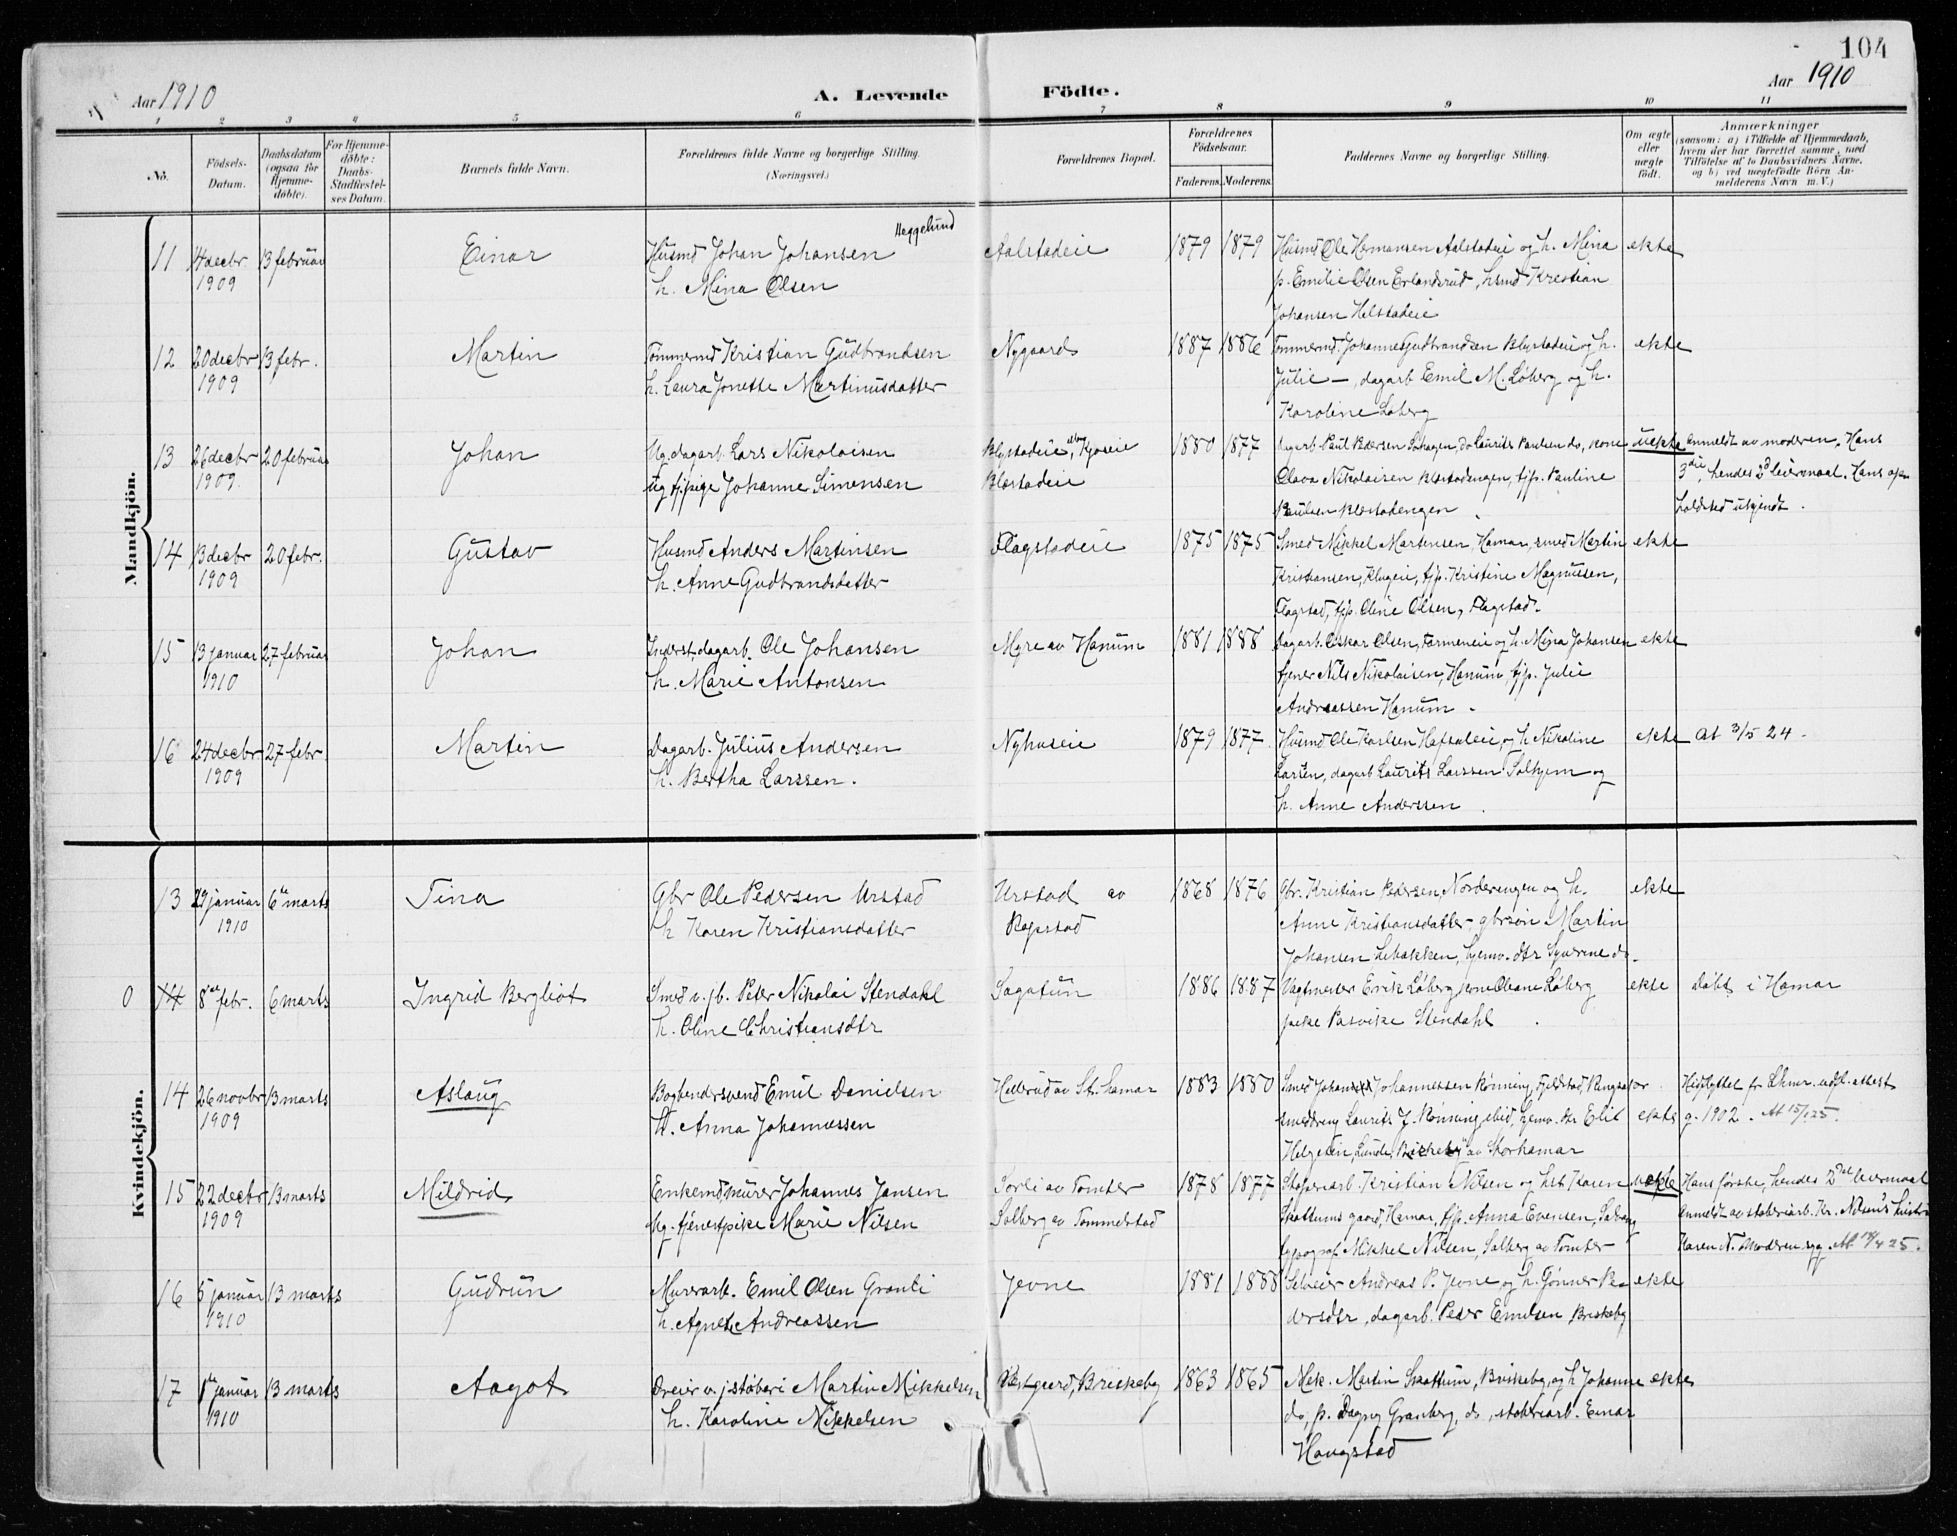 104
Aar 1910
A. Levende Födte.
Aar 1910
1 2 3 4 5 6 7 8 9 10 11
No.
Födsels-Datum.
Daabsdatum (ogsaa for Hjemme-döbte).
For Hjemme-döbte: Daabs-Stadfæstel-ses Datum.
Barnets fulde Navn.
Forældrenes fulde Navne og borgerlige Stilling.
(Næringsvei.)
Forældrenes Bopæl.
Forældrenes Födselsaar.
Faderens. Moderens.
Faddernes Navne og borgerlige Stilling.
Om ægte eller uægte födt.
Anmærkninger
(saasom: a) i Tilfælde af Hjemmedaab,
hvem der har forrettet samme, med
Tilföielse af to Daabsvidners Navne.
og b) ved uægtefödte Börn An-
melderens Navn m. V.)
Mandkjön.
Heggelund
11 14 decbr 13 februar Einar Husmd Johan Johansen Aalstadeie 1879 1879 Husmd Ole Hemansen Aalstadeie og h. Mina ekte
1909 h. Mina Olsen p. Emilie Olsen Erlandsrud, husmd Kristian
Johansen Helstadeie
12 20 decbr 13 febr. Martin Tømmermd Kristian Gudbrandsen Nygaard 1887 1886 Tømmermd. Johannes Gudbrandsen Blystadeie og h. ekte
1909 h. Laura Jonette Martinusdatter Julie —, dagarb. Emil M. Løberg og h.
Karoline Løberg
13 26 decbr 20 februar Johan Ug. dagarb. Lars Nikolaisen Blystadeie, 1880 1877 dagarb. Paul Pedersen do Laurits Paulsen do, kone uekte Anmeldt av moderen. Hans
1909. ug tj.pige Johanne Simensen Blæstadeie Olava Nikolaisen Blæstadengen, tjp. Pauline 3die, hendes 2d leiermaal. Hans op-
Paulsen Blæstadengen. holdsted ukjendt.
14 13 decbr 20 febr. Gustav Husmd Anders Martinsen Flagstadeie 1875 1875 Smed Mikkel Martinsen, Hamar, smed Martin ekte
1909 h. Anne Gudbrandsdatter Kristiansen, Klugeie, tjp. Kristine Magnussen,
Flagstad, tjp. Oline Olsen, Flagstad.
15 13 januar 27 februar Johan Inderst, dagarb. Ole Johansen Myre av Hanum 1881 1888 Dagarb. Oskar Olsen, Farmeneie og h. Mina Johansen ekte
1910 h. Marie Antonsen tjener Nils Nikolaisen, Hanum, tjp. Julie
Andreassen Hanum.
16 24 decbr 27 febr. Martin Dagarb. Julius Andersen Nyhuseie 1879 1877 Husmd Ole Karlsen Hafsaleie, og h. Nikoline ekte at 3/5 24.
1909 h. Bertha Larssen. Larsen, dagarb. Laurits Larssen Solhjem og
h. Anne Anderssen.
Kvindekjön.
13 29 januar 6te marts Tina Gbr Ole Pedersen Urstad Urstad av 1868 1876 Gbr. Kristian Pedersen, Norderengen og h. ekte
1910 h Karen Kristiansdatter Rogstad Anne Kristiansdatter, gbrsøn Martin
Johansen Lebakken, hjemv. dtr Syverine do.
0 14 8de febr. 6 marts Ingrid Bergliot Smed v. jb. Peter Nikolai Stendahl Sagatun 1886 1887 Vagtmester Erik Løberg, Oleane Løberg ekte døbt i Hamar
h. Oline Christiansdtr pike Stendahl.
14 26 novbr 13 marts Aslaug Bogbindersvend Emil Danielsen Hillerud av St. Hamar 1883 1880 Smed Johannessen Rønning, Fjeldstad, Ringsaker
1909 h. Anna Johannessen smeddreng Laurits J. Rønning ibid, hjemv. dtr Elit ekte g. 1902. At 15/1 25.
Helgesen, Lunde, av Storhamar
15 22 decbr 13 marts Mildrid Enkemd murer Johannes Jansen Sorli av Tomter 1878 1877 Støperiarb. Kristian Nilsen og hst Karen uekte Hans første, hendes 2det leiermaal
1909 Ug. tjenestpike Marie Nilsen Solberg av Tommelstad Skattums gaard, Hamar, tjp. Anna Evensen, Anmeldt av støberiarb. Kr. Nilsens hustru
typograf Mikkel Nilsen, Solberg av Tomter Karen N. Moderen syg. At 18/4 25.
16 5 januar 13 marts Gudrun Murerarb. Emil Olsen Granli Jevne 1881 1888 Selveier Andreas P. Jevne og h. Gønner Pe- ekte
1910 h. Agnete Andreassen dersdtr, dagarb. Peder Emilsen, Briskeby
17 1te januar 13 marts Aagot Dreier v. jstøberi Martin Mikkelsen Vestgaard, Briskeby 1863 1865 Mek. Martin Skattum, Briskeby, og h Johanne ekte
1910 h. Karoline Mikkelsen do, p. Dagny Granberg, do, støberiarb. Einar
Haugstad